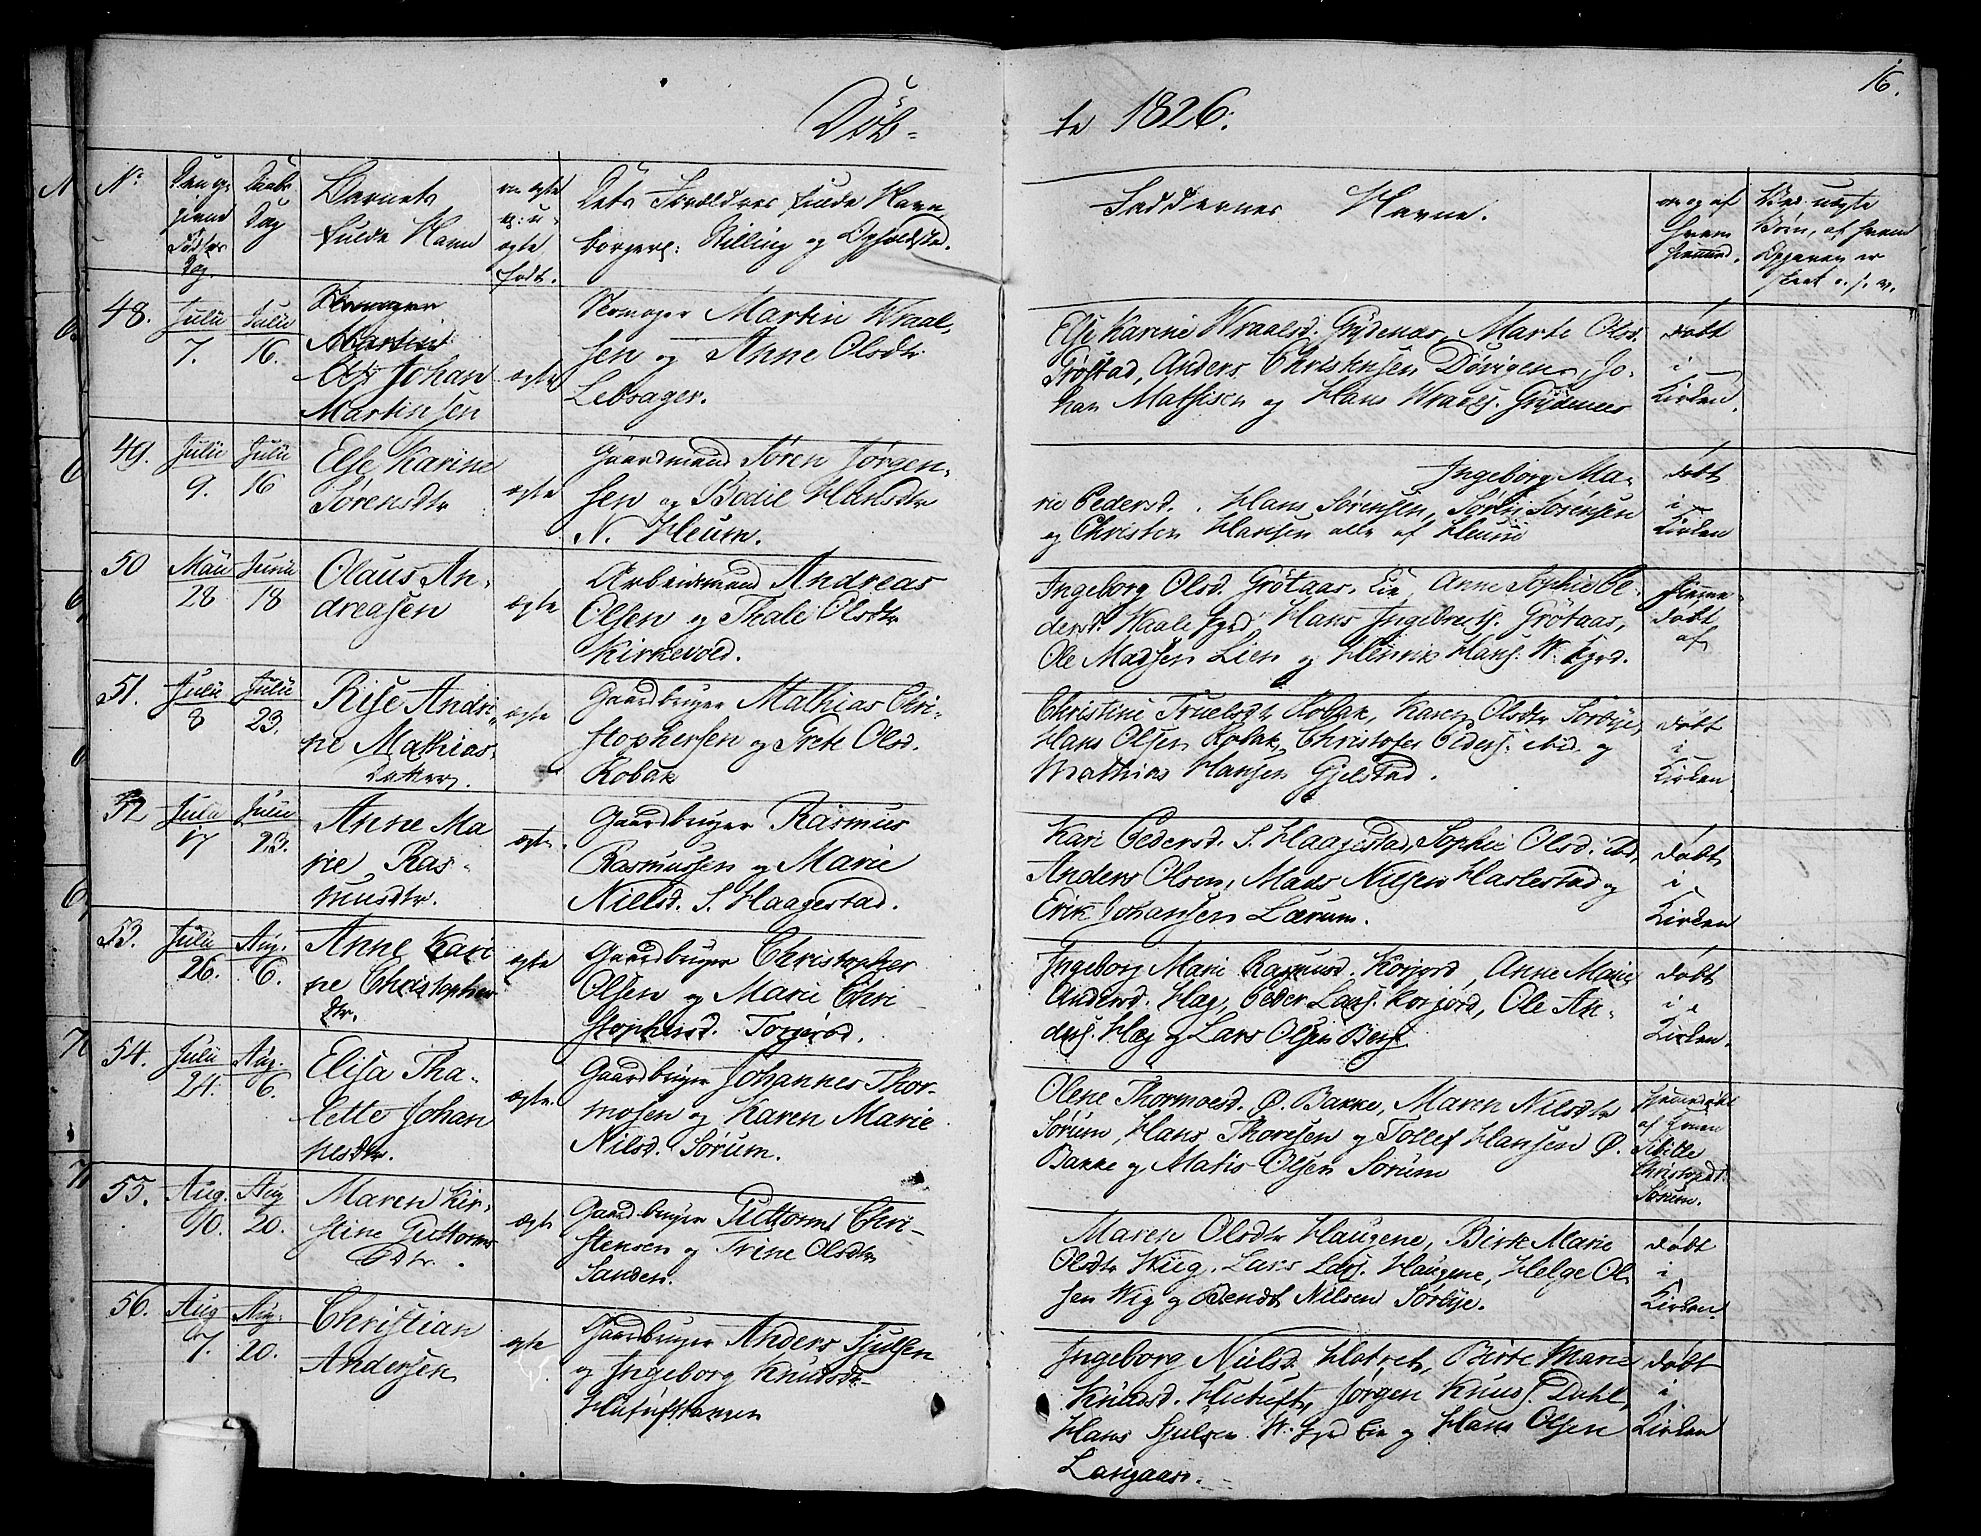 16.
Døb-
te 1826.
No
Dag
Barnets
fulde Navn
ægte
Dets Forældres fulde Navn,
borgerl: Stilling og Opholdsted.
Faddernes Navne.
48.
Julii
7.
Julii
16.
Johan
Martinsen
ægte
Martin Wraal-
sen og Anne Olsdtr
Lebsager.
Else Karine Wraalsd. Grydenæs, Marte Olsd.
Trøstad, Anders Christensen Døvigen, Jo-
han Mathisen og Hans Wraals. Grydenæs
døbt
i
Kirken.
49.
Julii
9.
Julii
16
Else Karine
Sørensdtr
ægte
Gaardmand Søren Jørgen-
sen og Bodil Hansdtr
N. Heum.
Ingeborg Ma-
rie Pedersd. Hans Sørensen, Søren Sørensen
og Christen Hansen alle af Heum
døbt
i
Kirken
50
Maii
28
Junii
18
Olaus An-
dreasen
ægte
Arbeidsmand Andreas
Olsen og Thale Olsdtr
Kirkevold.
Ingeborg Olsd. Grøtaas Eie, Anne Sophie Pe-
dersd. Waale Hans Ingebrets. Grøtaas,
Ole Madsen Lien og Henrik Hans.
Hjemme-
døbt
af
51.
Julii
8
Julii
23.
Rise Andri-
ne Mathias-
datter.
ægte
Gaardbruger Mathias Chri-
stophersen og Trete Olsd.
Kobak
Christine Truelsdtr Kobak, Karen Olsdtr Sørbye,
Hans Olsen Kobak, Christofer Peders. ibid. og
Mathias Hansen Gjelstad.
døbt
i
Kirken.
52
Julii
17
Julii
23.
Anne Ma
rie Ras-
musdtr.
ægte.
Gaardbruger Rasmus
Rasmussen og Marie
Nielsd. S. Haagestad.
Kari Pedersd. S. Haagestad, Sophie Olsd. ibd,
Anders Olsen, Mads Nilsen Haslestad og
Erik Johansen Lærum.
døbt
i
Kirken
53.
Julii
26.
Aug.
6.
Anne Kari
ne Christopher
dtr.
ægte
Gaardbruger Christopher
Olsen og Marie Chri
stophersd.
Ingeborg Marie Rasmusd. Korjord, Anne Marie
Andersd. Hag, Peder Lars. Korjord, Ole An-
ders. Hag og Lars Olsen Berg
døbt
i
Kirken.
54.
Julii
24.
Aug.
6.
Elisa Tha-
lette Johan
nesdtr.
ægte.
Gaardbruger Johannes Thor-
mosen og Karen Marie
Nilsd. Sørum.
Olene Thormoesd. Ø. Bakke, Maren Nilsdtr
Sørum, Hans Thoresen og Tollef Hansen Ø.
Bakke og Matis Olsen Sørum
Hjemmedøbt
af
Sibille
Christophd.
Sørum.
55.
Aug.
10.
Aug
20.
Maren Kir-
stine Guttorms
dtr.
ægte
Gaardbruger Guttorm Chri-
stensen og Trine Olsdtr
Sanden.
Maren Olsdtr Haugene, Birte Marie
Olsdtr Wiig, Lars Lars. Haugene, Helge Ol-
sen Wig og Bendt Nilsen Sørbye.
døbt
i
Kirken.
56.
Aug
7.
Aug.
20.
Christian
Andersen
ægte
Gaardbruger Anders Sjulsen
og Ingeborg Knudsdtr
Ingeborg Nielsd. Birte Marie
Knudsd. Hutuft, Jørgen Knuds. Dahl,
Hans Sjulsen og Hans Olsen
Langaas.
døbt
i
Kirken